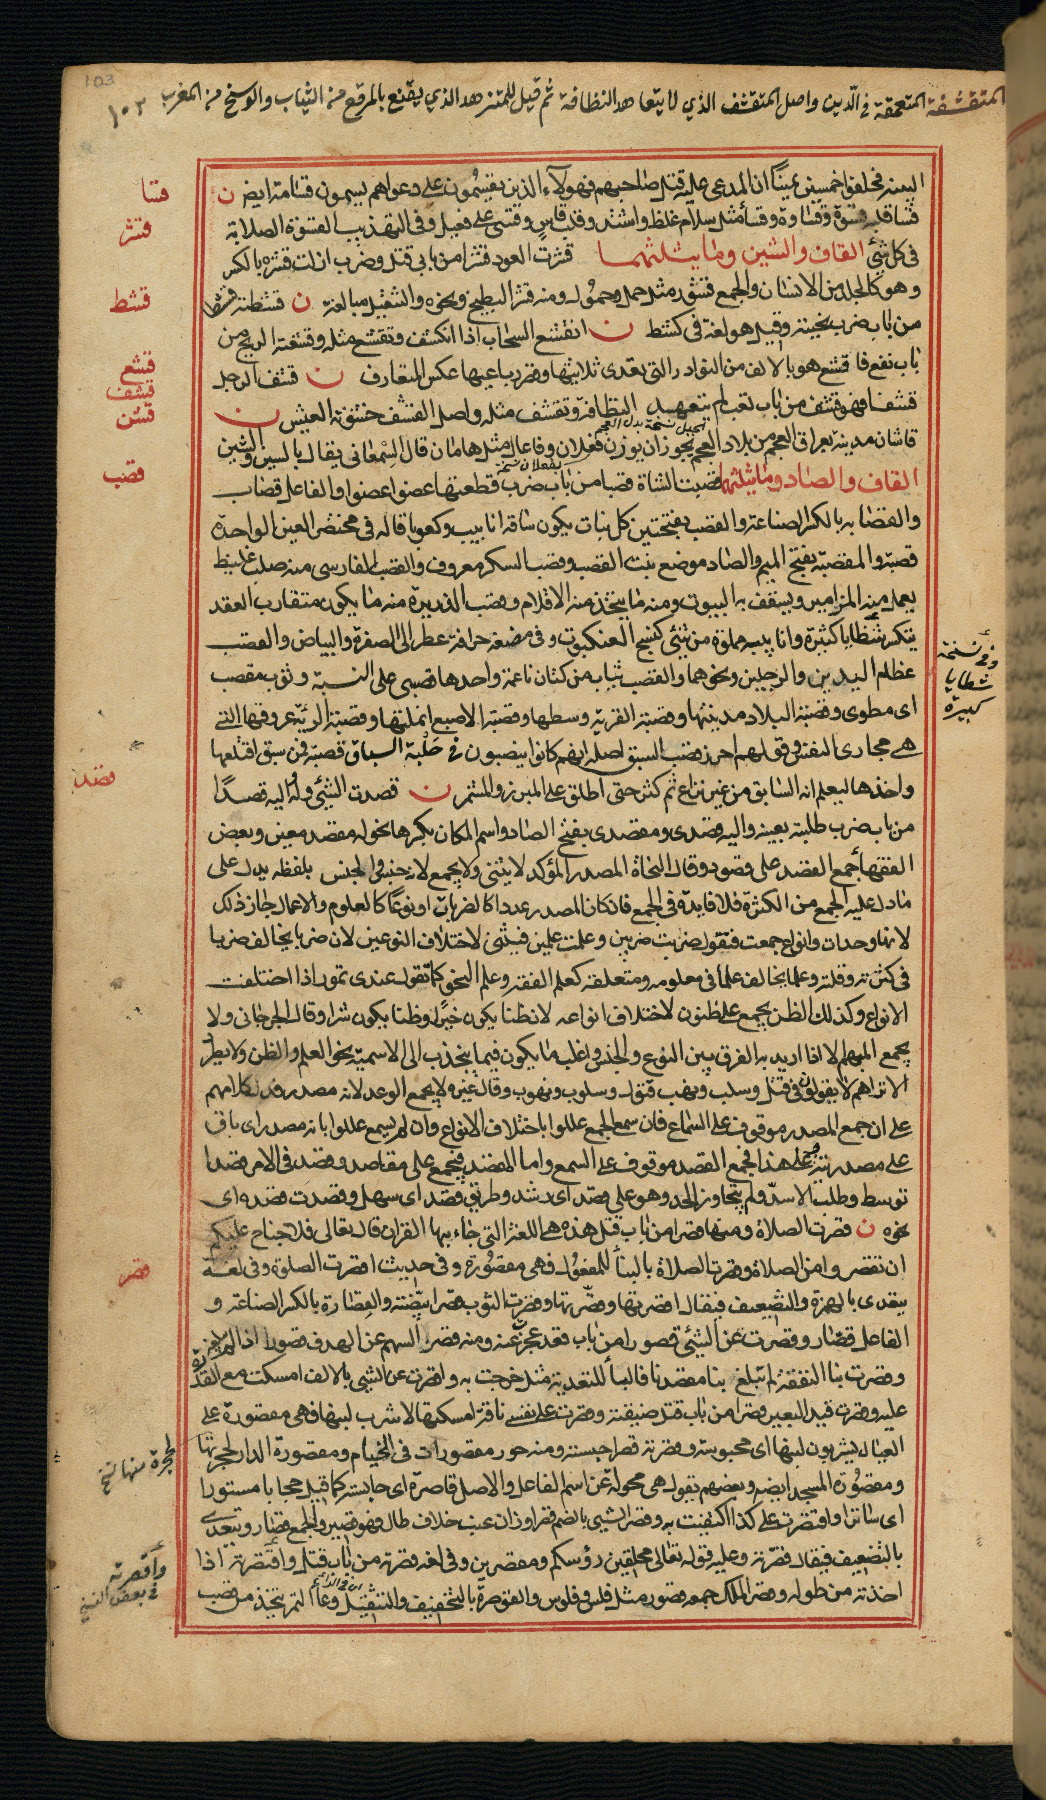 103
المتقشفة المتعمقة في الدين واصل المتقشف الذي لا يتعاهد النظافة ثم قيل للمتزهد الذي يقنع بالمرقع من الثياب والوسخ من المغرب ١٠٣
البينة فحلفوا خمسين يمينًا ان المدعى عليه قتل صاحبهم فهولاء الذين يقسمون على دعواهم يسمون قسامة ايضا ن
قسا قلبه قسوة وقساوة وقسأ مثل سلام غلظ واشتد وقلب قاس وقسي على فعيل وفي التهذيب القسوة الصلابة
في كل شئ القاف والشين وما يثلثهما قشرت العود قشرا من بابي قتل وضرب ازلت قشره بالكسر
وهو كالجلد من الانسان والجمع قشور مثل حمل وحمول ومنه قشر البطيخ ونحوه والتثقيل مبالغة ن قشطته قشطا
من باب ضرب نحيته وقيل هو لغة في كشط ن انقشع السحاب اذا انكشف وتقشع مثله وقشعته الريح من
باب نفع فاقشع هو بالالف من النوادر التي تعدى ثلاثيها وقصر رباعيها عكس المتعارف ن قشف الرجل
قشفا فهو قشف من باب تعب لم يتعهد النظافة وتقشف مثله واصل القشف خشونة العيش ن
قاشان مدينة بعراق العجم من بلاد العجم يجوز ان يوزن فعلان وفاعال مثل هامان قال السمعاني يقال بالسين والشين
القاف والصاد وما يثلثهما قصبت الشاة قصبا من باب ضرب قطعتها عضوا عضوا والفاعل قصاب
والقصابة بالكسر الصناعة والقصب بفتحتين كل نبات يكون ساقه انابيب وكعوبا قاله في مختصر العين الواحدة
قصبة والمقصبة بفتح الميم والصاد موضع نبت القصب وقصب السكر معروف والقصب الفارسي منه صلب غليظ
يعمل منه المزامير ويسقف به البيوت ومنه ما يتخذ منه الاقلام وقصب الذريرة منه ما يكون متقارب العقد
يتكسر شظايا كثيرة وانابيبه مملوة من شئ كنسج العنكبوت وفي مضغه حرافة عطر الى الصفرة والبياض والقصب
عظام اليدين والرجلين ونحوهما والقصب ثياب من كتان ناعمة واحدها قصبي على النسبة وثوب مقصب
اي مطوى وقصبة البلاد مدينتها وقصبة القرية وسطها وقصبة الاصبع انملتها وقصبة الرئة عروقها التي
هي مجارى النفس وقولهم احرز قصب السبق اصله انهم كانوا ينصبون في حلبة السباق قصبة فمن سبق اقتلعها
واخذها ليعلم انه السابق من غير نزاع ثم كثر حتى اطلق على المبرز والمشمر ن قصدت الشئ وله واليه قصدًا
من باب ضرب طلبته بعينه واليه قصدى ومقصدى بفتح الصاد واسم المكان بكسرها نحو له مقصد معين وبعض
الفقها جمع القصد على قصود وقال النحاة المصدر المؤكد لا يثنى ولا يجمع لانه جنس والجنس بلفظه يدل على
ما دل عليه الجمع من الكثرة فلا فايدة في الجمع فان كان المصدر عددا كالضربات او نوعًا كالعلوم والاعمال جاز ذلك
لانها وحدات وانواع جمعت فتقول ضربت ضربين وعلمت علمين فيثنى لاختلاف النوعين لان ضربا يخالف ضربا
في كثرته وقلته وعلما يخالف علما في معلومه ومتعلقه كعلم الفقه وعلم النحو كما تقول عندى تمور اذا اختلفت
الانواع وكذلك الظن يجمع على ظنون لاختلاف انواعه لان ظنا يكون خيرًا وظنا يكون شرا وقال الجرجاني ولا
يجمع المبهم الا اذا اريد به الفرق بين النوع والجنس واغلب ما يكون فيما ينجذب الى الاسمية نحو العلم والظن ولا يطرد
الا تراهم لا يقولون في قتل وسلب ونهب قتول وسلوب ونهوب وقال غيره لا يجمع الوعد لانه مصدر فدل كلامهم
على ان جمع المصدر موقوف على السماع فان سمع الجمع عللوا باختلاف الانواع وان لم يسمع عللوا بانه مصدر اى باق
على مصدريته وعلى هذا فجمع القصد موقوف على السمع واما المقصد فيجمع على مقاصد وقصد في الامر قصدا
توسط وطلب الاسد ولم يجاوز الحد وهو على قصد اى رشد وطريق قصد اى سهل وقصدت قصده اى
نحوه ن قصرت الصلاة ومنها قصرا من باب قتل هذه هي اللغة التي جاء بها القران قال تعالى فلا جناح عليكم
ان تقصروا من الصلاة وقصرت الصلاة بالبنا للمفعول فهي مقصورة وفي حديث اقصرت الصلوة وفي لغة
يتعدى بالهمزة والتضعيف فيقال اقصرتها وقصّرتها وقصرت الثوب قصرا بيّضته والقصارة بالكسر الصناعة و
الفاعل قصّار وقصرت عن الشئ قصورا من باب قعد عجزت عنه ومنه قصر السهم عن الهدف قصورا اذا لم يبلغه
وقصرت بنا النفقة لم تبلغ بنا مقصدنا فالبا للتعدية مثل خرجت به واقصرت عن الشئ بالالف امسكت مع القدرة
عليه وقصرت قيد البعير قصرا من باب قتل ضيقته وقصرت على نفسي ناقة امسكتها لاشرب لبنها فهي مقصورة على
العيال يشربون لبنها اى محبوسة وقصرته قصرا حبسته ومنه حور مقصورات في الخيام ومقصورة الدار لحجرتها
ومقصورة المسجد ايضا وبعضهم يقول هي محولة عن اسم الفاعل والاصل قاصرة اى حابسة كما قيل حجابا مستورا
اى ساترا واقتصرت على كذا اكتفيت به وقصر الشئ بالضم قصرا وزان عنب خلاف طال فهو قصير والجمع قصار ويتعدى
بالتضعيف فيقال قصّرته وعليه قوله تعالى محلقين رؤسكم ومقصرين وفي لغة قصرته من باب قتل واقتصرته اذا
اخذته من طوله وقصر الملك جمعه قصور مثل فلس وفلوس والقوصرة بالتخفيف والتثقيل وعأ التمر يتخذ من قصب
قسا
قشر
قشط
قشع
قشف
قشن
قصب
قصد
قصر
وفي نسخة
شظايا
كبيرة
لحجرة منها نسخ
واقصرته
في بعض النسخ